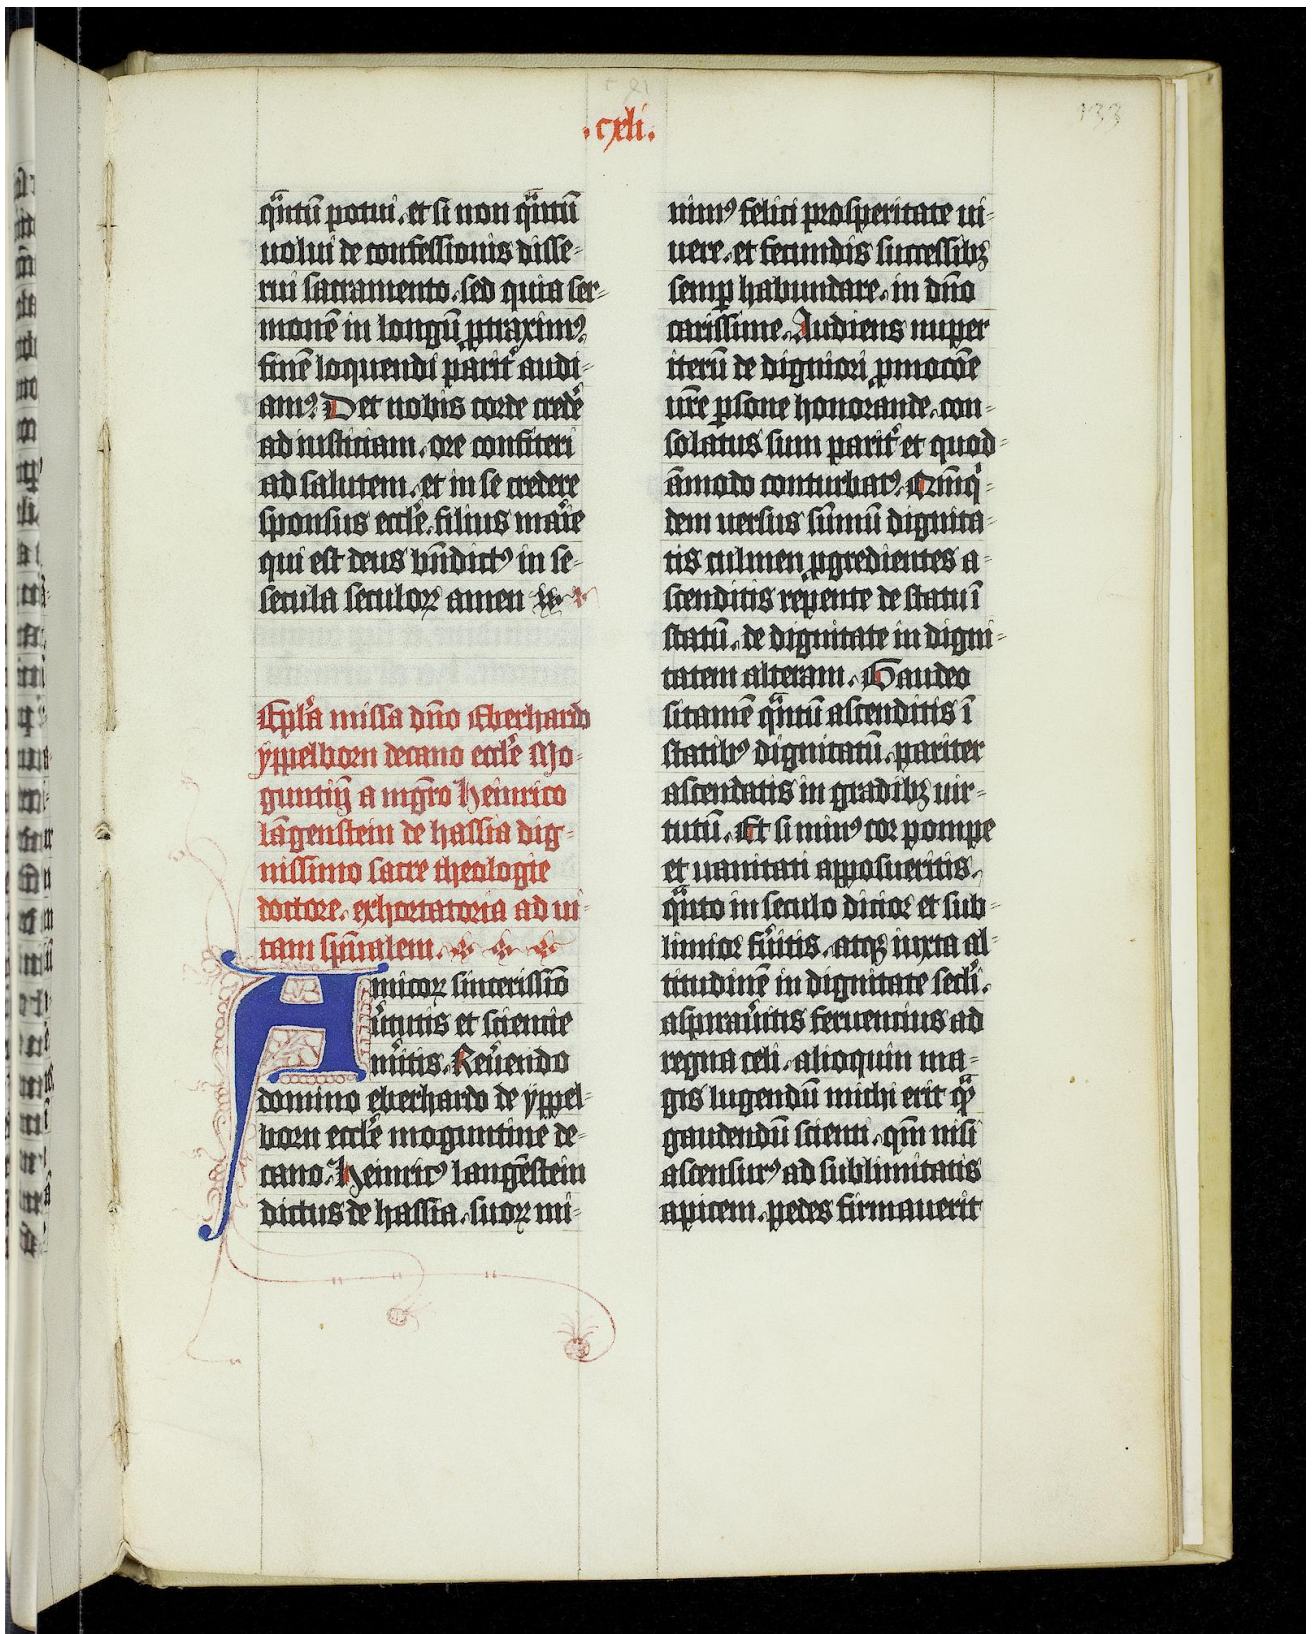 .cxli.
133
qͣntū potui. et si non qͣntū
uolui de confessionis disse-
rui sacramento. sed quia ser-
monē in longū ꝓtraximꝰ.
finē loquendi parit᷑ audi-
amꝰ. Det nobis corde credē
ad iusticiam. ore confiteri
ad salutem. et in se credere
sponsus eccle᷑. filius marie᷑
qui est deus bn̄dictꝰ in se-
secula seculoꝝ amen
Epl᷑a missa dn̄o Eberhardo
yppelborn decano eccle᷑ Mo-
guntiꝰ a mgr̄o Heinrico
lāgenstein de hassia dig-
nissimo sacre theologie
doctore. exhortatoria ad ui-
tam spūalem.
Amicoꝝ sincerissīo
u᷑tutis et sciencie
m᷑itis. Reuēendo
domino eberhardo de yppel-
born eccle᷑ moguntine de-
cano. Heinricꝰ langēstein
dictus de hassia. suoꝝ mi-
nimꝰ felici prosperitate ui-
uere. et fecundis successibꝫ
semꝑ habundare. in dn̄o
carissime. Audiens nuper
iterū de digniori ꝓmocōe
ur̄e ꝑsone honorande. con-
solatus sum parit᷑ et quod-
āmodo conturbatꝰ. Qm̄qͥ-
dem uersus sūmū dignita-
tis culmen ꝓgredientes a-
scenditis repente de statu ī
statū. de dignitate in digni-
tatem alteram. Gaudeo
si tamē qͣntū ascenditis ī
statibꝰ dignitatū. pariter
ascendatis in gradibꝫ uir-
tutū. Et si minꝰ cor pompe
et uanitati apposueritis.
qͣnto in seculo dicior et sub-
limior fu᷑itis. atqꝫ iuxta al-
titudinē in dignitate secl᷑i.
aspirau᷑itis feruentius ad
regna celi. alioquin ma-
gis lugendū michi erit qͣꝫ
gaudendū scienti. qm̄ nisi
ascensurꝰ ad sublimitatis
apicem. pedes firmauerit